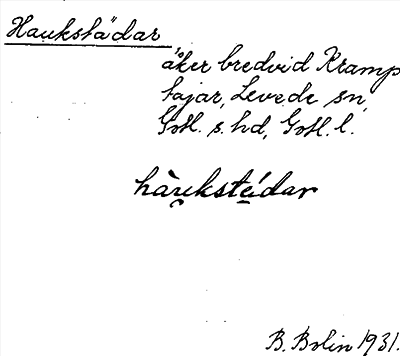 Haukstädar
åker bredvid Kramp
tajar, Levede sn,
Gotl. s. hd, Gotl. l.
hàu̯ksté̠dar
B. Bolin 1931.